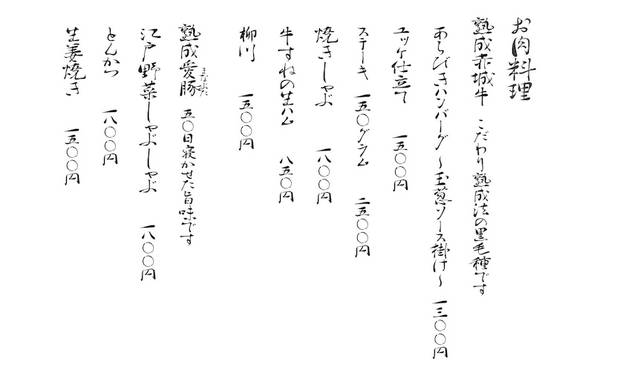 お肉料理
熟成赤城牛 こだわり熟成法の黒毛種です
あらびきハンバーグ 〜玉葱ソース掛け〜 一三〇〇円
ユッケ仕立て 一五〇〇円
ステーキ 一五〇グラム 二五〇〇円
焼きしゃぶ 一八〇〇円
牛すねの生ハム 八五〇円
柳川 一五〇〇円
熟成愛豚 五〇日寝かせた旨味です
江戸野菜しゃぶしゃぶ 一八〇〇円
とんかつ 一八〇〇円
生姜焼き 一五〇〇円